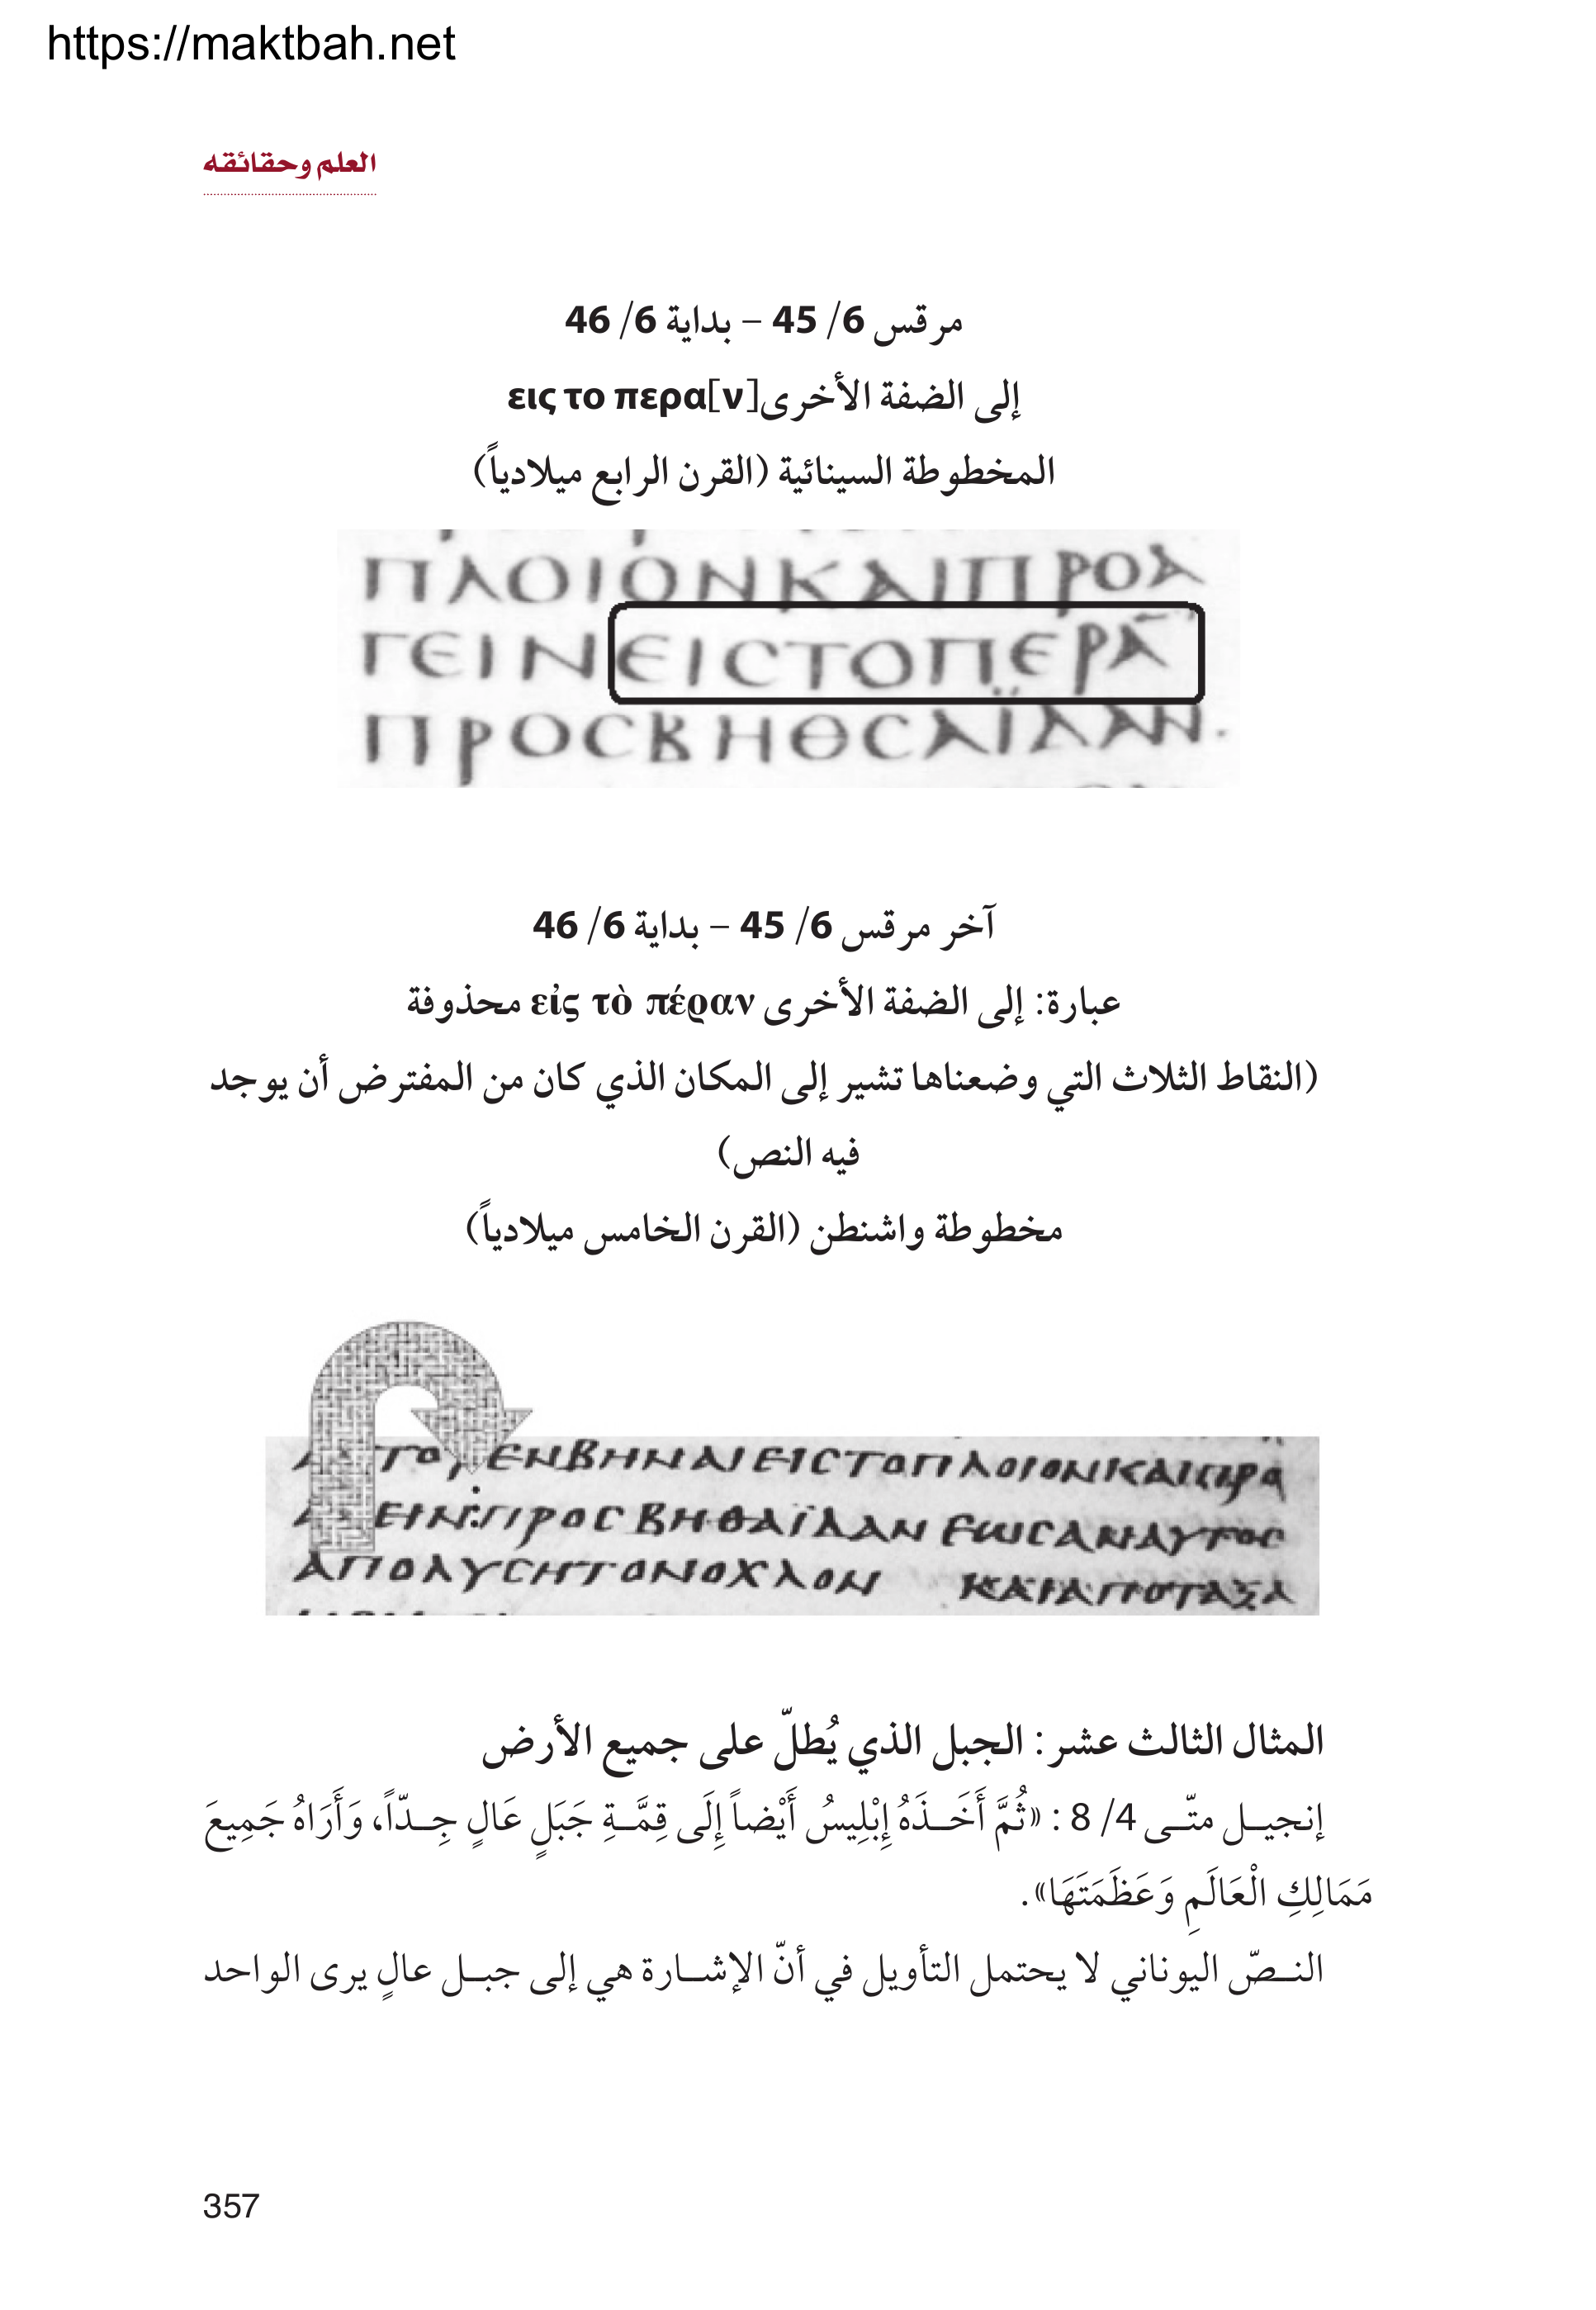 https://maktbah.net
العلم وحقائقه
مرقس 6/ 45 – بداية 6/ 46
إلى الضفة الأخرى εις το περα[ν]
المخطوطة السينائية (القرن الرابع ميلادياً)
ΠΛΟΙΟΝΚΑΙΠΡΟΑ
ΓΕΙΝΕΙCΤΟΠΕΡΑ̅
ΠΡΟCΒΗΘCΑΪΔΑΝ·
آخر مرقس 6/ 45 – بداية 6/ 46
عبارة: إلى الضفة الأخرى εἰς τὸ πέραν محذوفة
(النقاط الثلاث التي وضعناها تشير إلى المكان الذي كان من المفترض أن يوجد
فيه النص)
مخطوطة واشنطن (القرن الخامس ميلادياً)
ΕΝΒΗΝΑΙΕΙCΤΟΠΛΟΙΟΝΚΑΙΠΡΟ
ΕΙΝ:ΠΡΟCΒΗΘΑΪΔΑΝ ΕΩCΑΝΑΥΤΟC
ΑΠΟΛΥCΗΤΟΝΟΧΛΟΝ ΚΑΙΑΠΟΤΑΞΑ
المثال الثالث عشر: الجبل الذي يُطلّ على جميع الأرض
إنجيـل متّـى 4/ 8 : «ثُمَّ أَخَـذَهُ إِبْلِيسُ أَيْضاً إِلَى قِمَّـةِ جَبَلٍ عَالٍ جِـدّاً، وَأَرَاهُ جَمِيعَ
مَمَالِكِ الْعَالَمِ وَعَظَمَتَهَا».
النـصّ اليوناني لا يحتمل التأويل في أنّ الإشـارة هي إلى جبـل عالٍ يرى الواحد
357